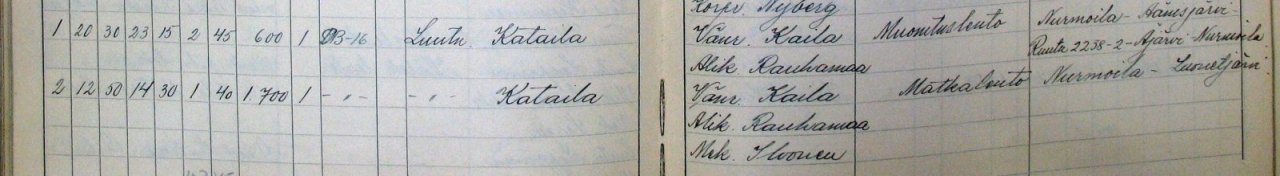 Nyberg
1 20 30 23 15 2 45 600 1 DB-16 Luutn. Kataila Vänr. Kaila Muonituslento Nurmoila - Äänisjärvi -
Alik. Rauhamaa Ruutu 2238-2-Äjärvi-Nurmoila
2 12 50 14 30 1 40 1.700 1 -"- -"- Kataila Vänr. Kaila Matkalento Nurmoila - Luonetjärvi
Alik. Rauhamaa
Mek. Iivonen